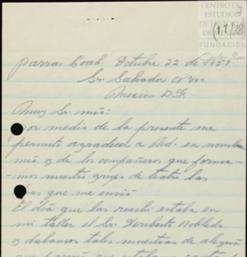 CENTRO DE
ESTUDIOS
DE
FUNDACIÓN
Parras Coah, Octubre 22 de 1951
Sr Salvador
Mexico D.F.
Muy Sr mio:
Por medio de la presente me
permito agradecer a Ud. en nombre
mio y de los compañeros que forma-
mos nuestro grupo de teatro las
que me envió
El dia que las recibi estaba en
mi taller el Sr. Heriberto Robledo
y dabamos tales muestras de alegria